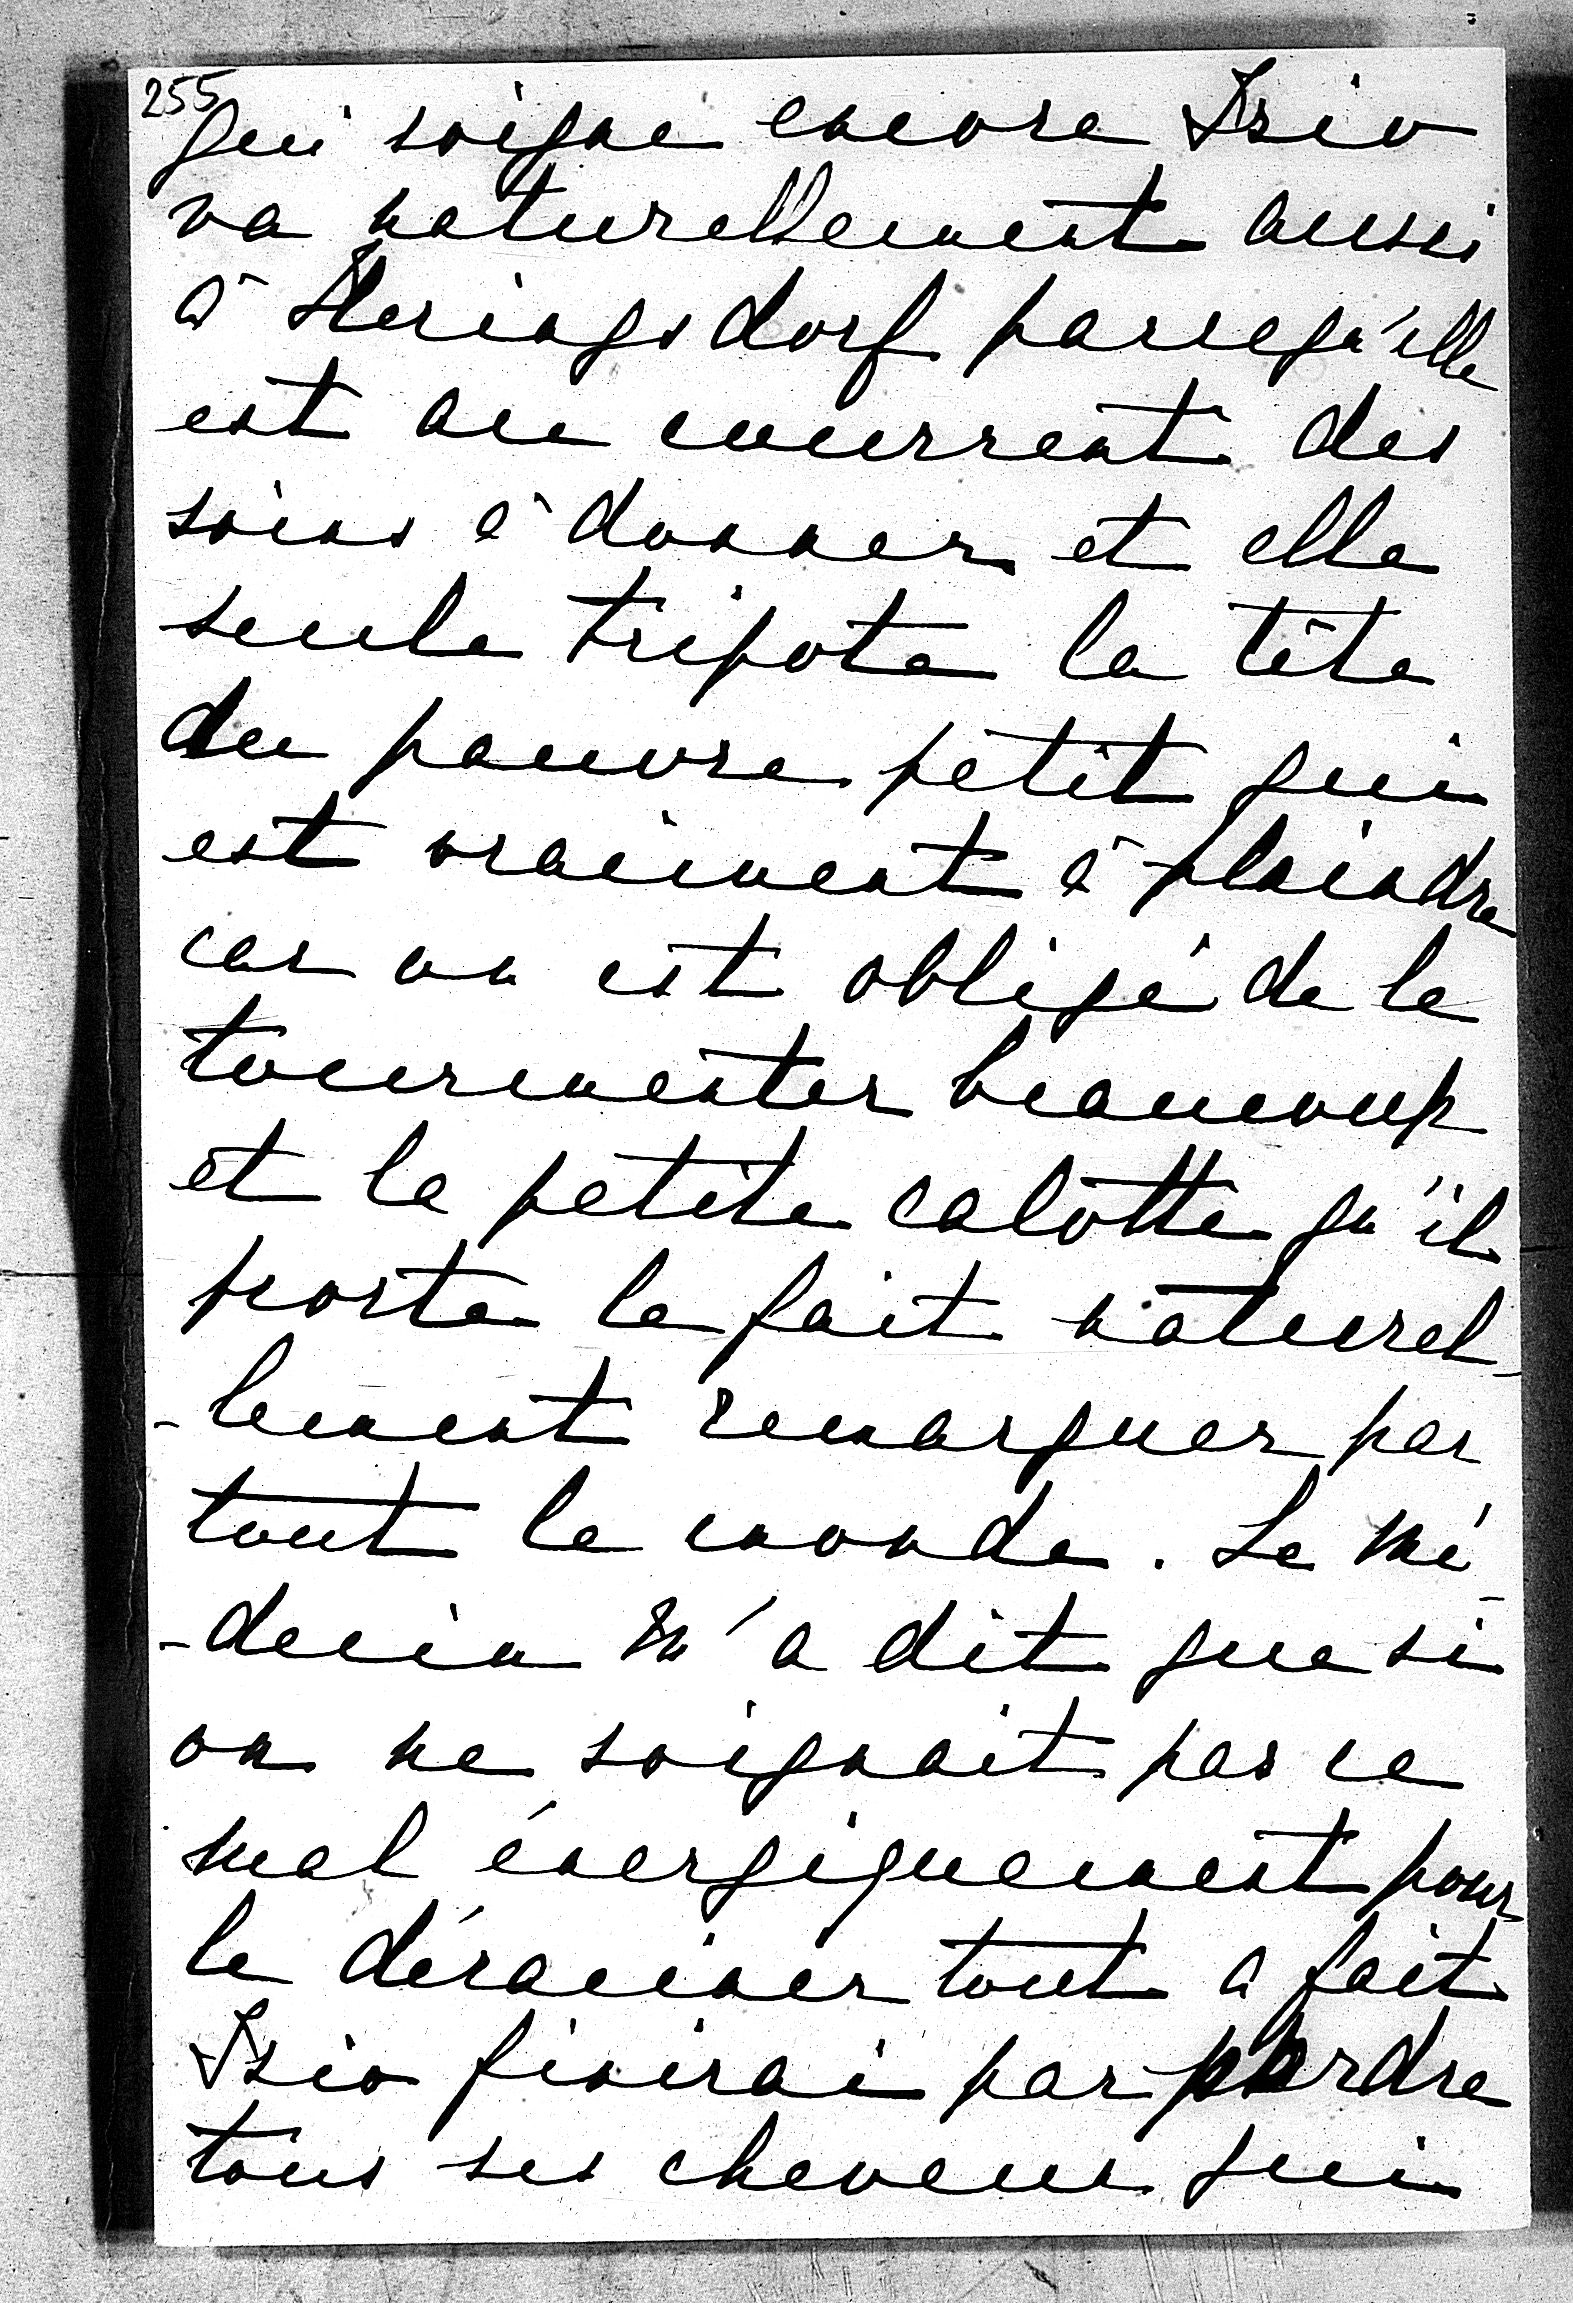 255
qui soigne encore Izio
va naturellement aussi
à Heringsdorf parcequ'elle
est au courrent des
soins à donner et elle
seule tripote la tête
du pauvre petit qui
est vraiment à plaindre
car on est obligé de le
tourmenter beaucoup
et la petite calotte qu'il
porte le fait naturel-
-lement remarquer par
tout le monde. Le mé-
-decin m'a dit que si
on ne soignait pas ce
mal énergiquement pour
le déraciner tout a fait
Izio finirai par perdre
tous ses cheveux qui